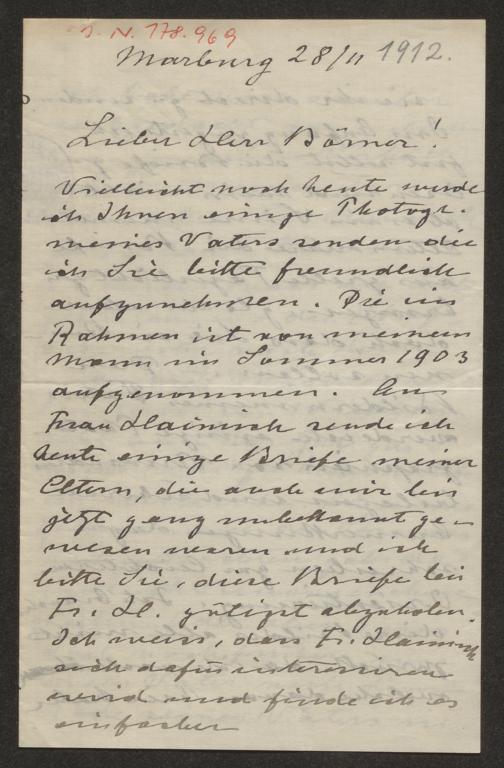 I. N. 178.969
Marburg 28/11 1912.
Lieber Herr Börner!
Vielleicht noch heute werde
ich Ihnen einige Photogr.
meines Vaters senden die
ich Sie bitte freundlich
aufzunehmen. Die im
Rahmen ist von meinem
Mann im Sommer 1903
aufgenommen. An
Frau Hainisch sende ich
heute einige Briefe meiner
Eltern, die auch mir bis
jetzt ganz unbekannt ge-
wesen waren und ich
bitte Sie, diese Briefe bei
Fr. H. gütigst abzuholen.
Ich weiss, dass Fr. Hainisch
sich dafür interessieren
wird und finde ich es
einfacher